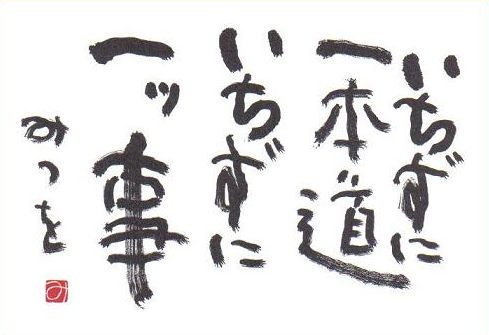 いちずに
一本道
いちずに
一ッ事
みつを
み